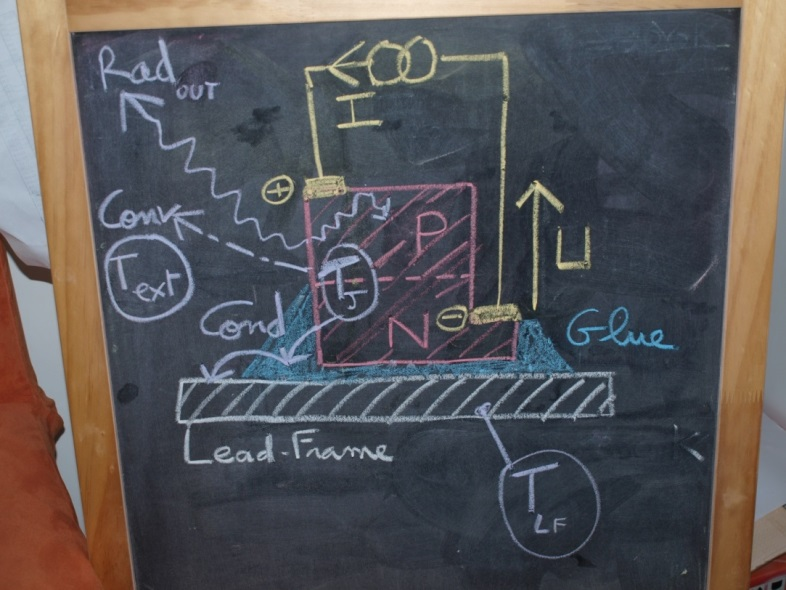 Rad OUT
I
+
Conv
P
U
T ext
T J
Cond
N
-
Glue
Lead-Frame
T LF